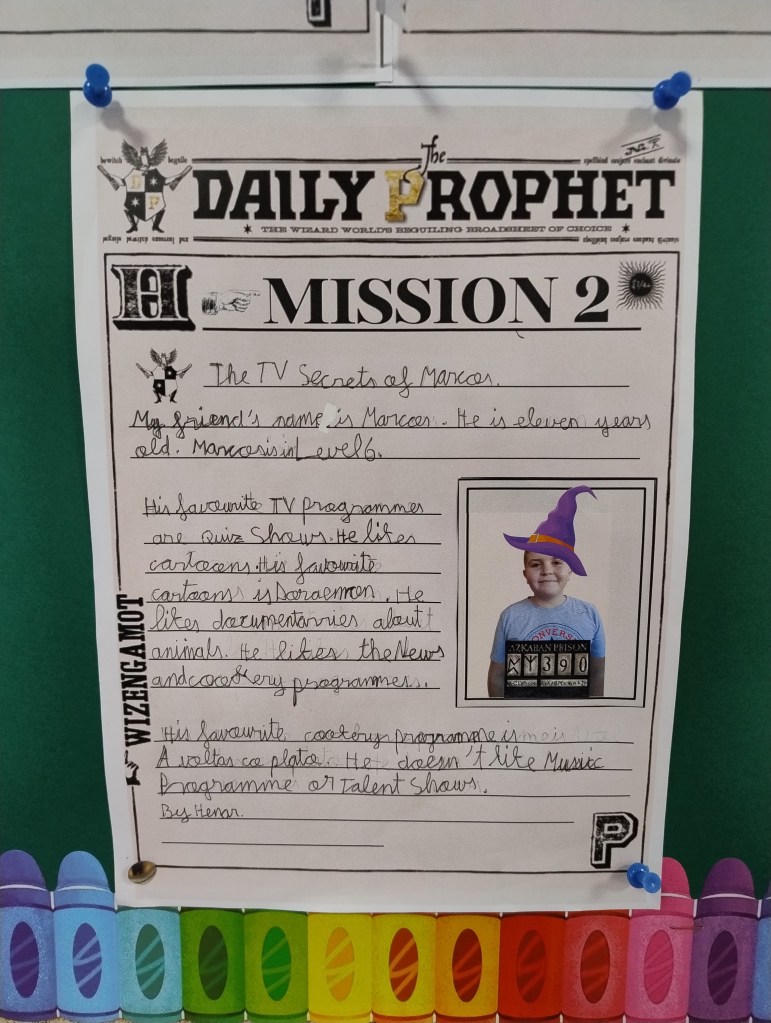 The
DAILY PROPHET
THE WIZARD WORLD'S BEGUILING BROADSHEET OF CHOICE
bewitch beguile
H MISSION 2
The TV Secrets of Marcos.
My friend's name is Marcos. He is eleven years
old. Marcos is in Level 6.
His favourite TV programmes
are Quiz Shows. He likes
cartoons. His favourite
cartoons is Doraemon. He
likes documentarries about
animals. He likes the News
and cookery programmes.
WIZENGAMOT
CONVERSE
AZKABAN PRISON
390
His favourite cookery programme is
A voltas co plato. He doesn't like Music
Programme or Talent Shows.
By Henar.
P